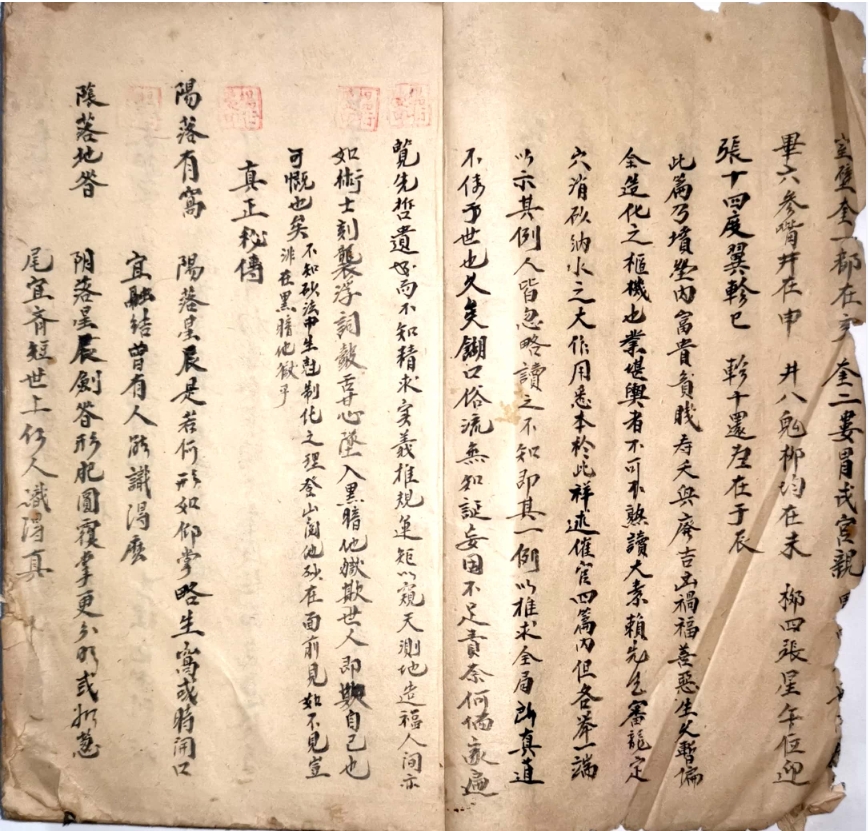 室壁奎一都在亥　奎二婁胃戌宮親
畢六參嘴井在申　井八鬼柳均在未　柳四張星午位迎
張十四度翼軫巳　軫十還君在于辰
此篇乃墳塋內富貴貧賎寿夭興廢吉凶禍福善惡生久暫偏
全造化之樞機也業堪輿者不可不熟讀大素賴先生審龍定
穴消砂納水之大作用悉本於此祥述催官四篇內但各舉一端
以示其例人皆忽略讀之不知即其一例以推求全局所真道
不傳于世也久矣餬口俗流無知証妄固不足責奈何儒家
覽先哲遺而不知精求实義推規運矩以窺天測地造福人间亦
如術士刻襲浮詞鼓弄心墜入黒暗地獄欺世人即欺自己也
可慨也矣
不知砂法中生剋制化之理登山阅地砂在面前見如不見豈
非在黒暗地獄乎
真正秘傳
陽落有窩　陽落星辰是若何形如仰掌略生窩或時開口
宜融結曽有人能識得麽
陰落地
阴落星辰劍形肥圓覆掌更分
尾宜齊短世上何人識得真